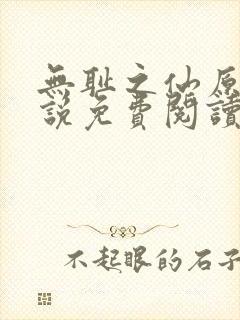 無耻之仙原
說免費閱讀
不起眼的石子